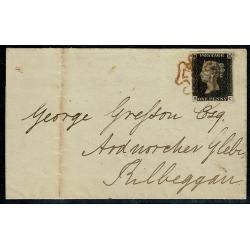 POSTAGE
ONE PENNY
George Gresson Esq.
Ardnorcher Glebe
Kilbeggan